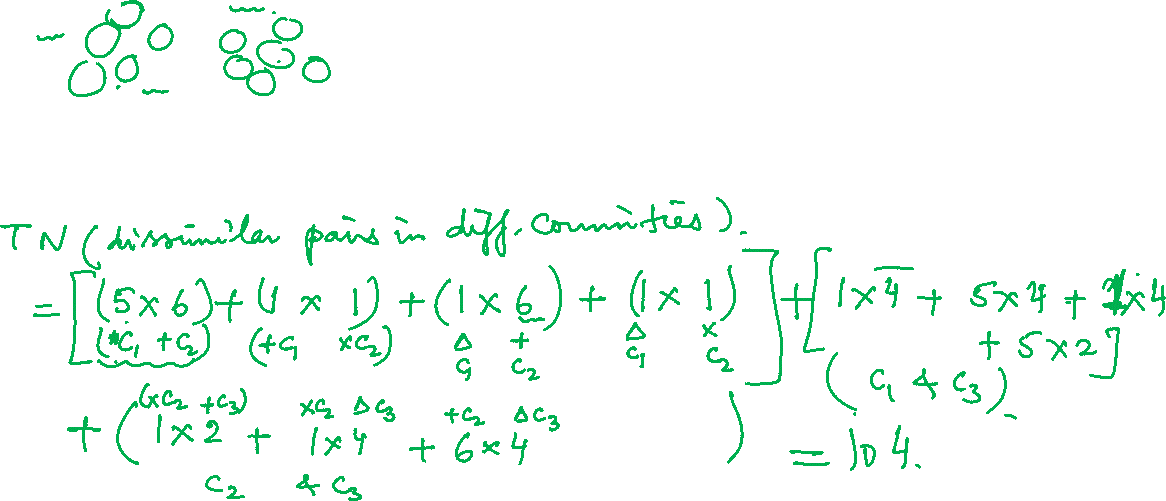 TN (dissimilar pairs in diff. communities).
= [(5 x 6) + (1 x 1) + (1 x 6) + (1 x 1)] + [1 x 4 + 5 x 4 + 1 x 4
(*C₁ +C₂) (+C₁ xC₂) Δ C₁ + C₂ Δ C₁ x C₂ + 5 x 2]
(C₁ & C₃)
(xC₂ +C₃) xC₂ ΔC₃ +C₂ ΔC₃
+ (1 x 2 + 1 x 4 + 6 x 4) = 104.
C₂ & C₃